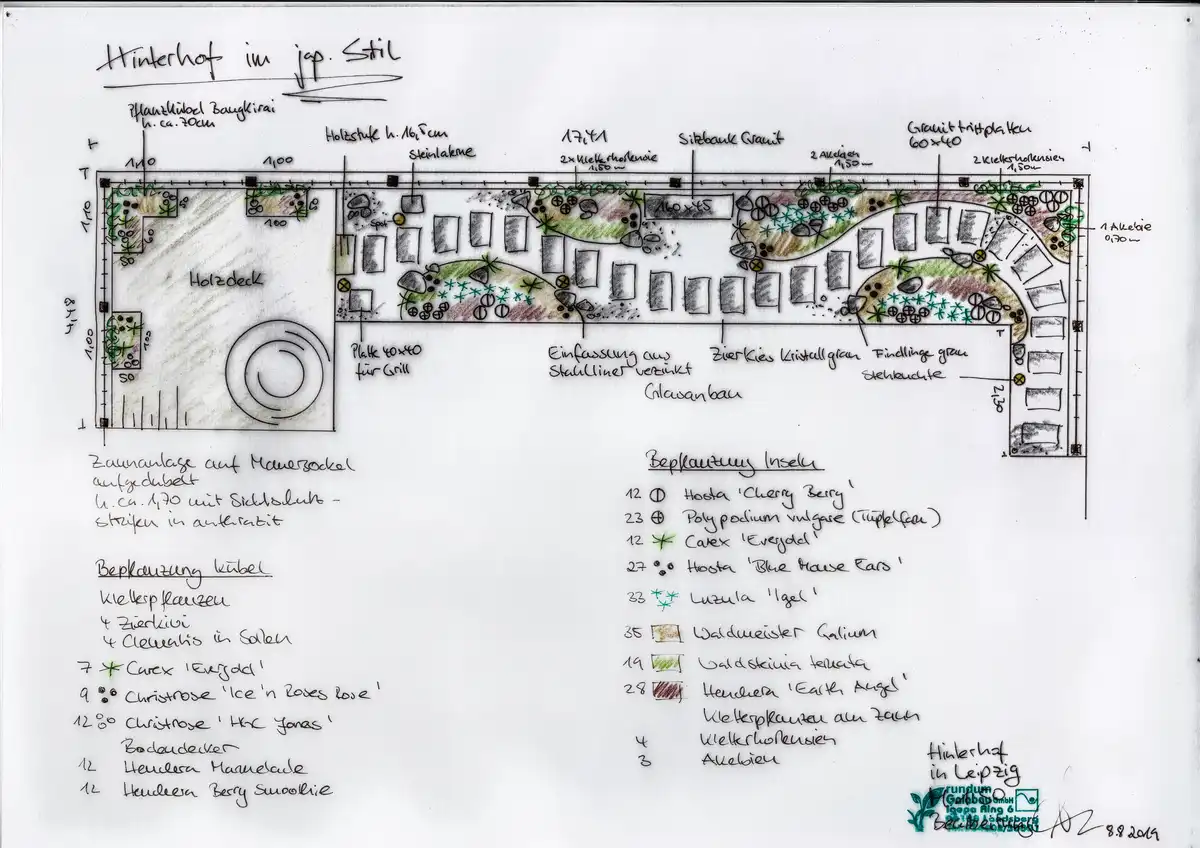 Hinterhof im jap. Stil
Pflanzkübel Bangkirai
h. ca. 70cm
Holzstufe h. 16,5cm
Steinlaterne
17,41
2x Kletterhortensie
1,50m
Sitzbank Granit
2 Akebien
1,50m
Granittrittplatten
60x40
2 Kletterhortensien
1,50m
1,10
1,00
1,10
60
50
100
140x45
1 Akebie
0,70m
Holzdeck
4,48
1,00
100
50
Platte 40x40
für Grill
Einfassung aus
Stahlliner verzinkt
Zierkies Kristallgrau
Findlinge grau
Stehleuchte
2,30
Glasanbau
Zaunanlage auf Mauersockel
aufgedübelt
h. ca. 1,70 mit Sichtschutz-
streifen in anthrazit
Bepflanzung Kübel
Kletterpflanzen
4 Zierkiwi
4 Clematis in Sorten
7 Carex 'Evergold'
9 Christrose 'Ice'n Roses Rose'
12 Christrose 'HGC Jonas'
Bodendecker
12 Heuchera Marmelade
12 Heuchera Berry Smoothie
Bepflanzung Inseln
12 Hosta 'Cherry Berry'
23 Polypodium vulgare (Tüpfelfarn)
12 Carex 'Evergold'
27 Hosta 'Blue Mouse Ears'
33 Luzula 'Igel'
35 Waldmeister Galium
19 Waldsteinia ternata
28 Heuchera 'Earth Angel'
Kletterpflanzen am Zaun
4 Kletterhortensien
3 Akebien
Hinterhof
in Leipzig
M 1:50
rundum
Galabau GmbH
Iqepa Ring 6
8.8.2019